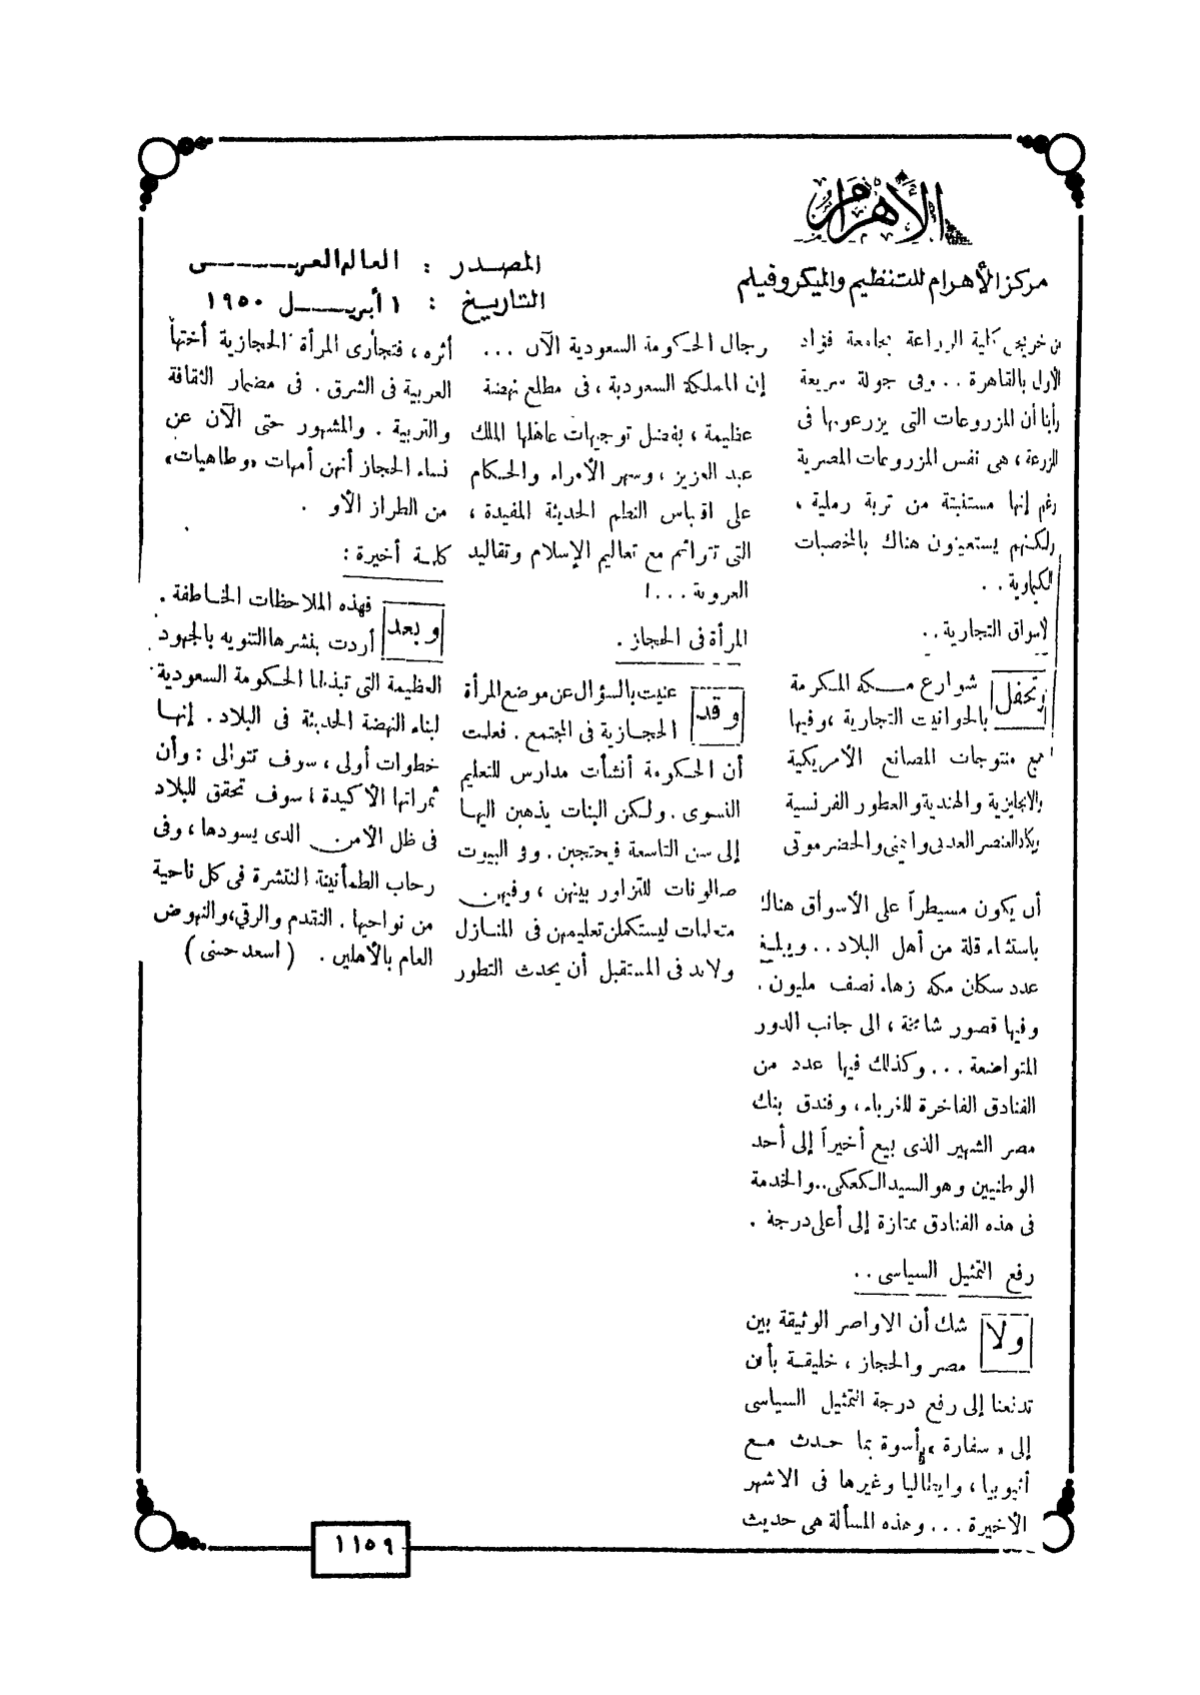 الأهرام
مركز الأهرام للتنظيم والميكروفيلم
المصدر : العالم العربى
التاريخ : ١ أبريل ١٩٥٠
من خريجى كلية الزراعة بجامعة فؤاد
الأول بالقاهرة . . وفى جولة سريعة
رأينا أن المزروعات التى يزرعونها فى
المزرعة ، هى نفس المزروعات المصرية
رغم إنها مستنبتة من تربة رملية ،
ولكنهم يستعينون هناك بالمخصبات
الكيماوية . .
الأسواق التجارية . .
وتحفل شوارع مكه المكرمة
بالحوانيت التجارية ، وفيها
جميع منتوجات المصانع الأمريكية
والانجليزية والهندية والعطور الفرنسية
ويكاد العنصر العدنى واليمنى والحضرموتى
أن يكون مسيطراً على الأسواق هناك
باستثناء قلة من أهل البلاد . . ويبلغ
عدد سكان مكه زهاء نصف مليون .
وفيها قصور شامخة ، الى جانب الدور
المتواضعة . . . وكذلك فيها عدد من
الفنادق الفاخرة للغرباء ، وفندق بنك
مصر الشهير الذى بيع أخيراً إلى أحد
الوطنيين وهو السيد الكعكى . . والخدمة
فى هذه الفنادق ممتازة إلى أعلى درجة .
رفع التمثيل السياسى . .
ولا شك أن الاواصر الوثيقة بين
مصر والحجاز ، خليقة بأن
تدفعنا إلى رفع درجة التمثيل السياسى
إلى « سفارة » أسوة بما حدث مع
أثيوبيا ، وايطاليا وغيرها فى الاشهر
الأخيرة . . . وهذه المسألة هى حديث
رجال الحكومة السعودية الآن . . .
إن المملكة السعودية ، فى مطلع نهضة
عظيمة ، بفضل توجيهات عاهلها الملك
عبد العزيز ، وسهر الأمراء والحكام
على اقباس النظم الحديثة المفيدة ،
التى تتوائم مع تعاليم الإسلام وتقاليد
العروبة . . . !
المرأة فى الحجاز .
وقد عنيت بالسؤال عن موضع المرأة
الحجازية فى المجتمع . فعلمت
أن الحكومة أنشأت مدارس للتعليم
النسوى . ولكن البنات يذهبن اليها
إلى سن التاسعة فيحتجبن . وفى البيوت
صالونات للتزاور بينهن ، وفيهن
متعلمات ليستكملن تعليمهن فى المنازل
ولابد فى المستقبل أن يحدث التطور
أثره ، فتجارى المرأة الحجازية أختها
العربية فى الشرق . فى مضمار الثقافة
والتربية . والمشهور حتى الآن عن
نساء الحجاز أنهن أمهات « وطاهيات »
من الطراز الأو .
كلمة أخيرة :
وبعد فهذه الملاحظات الخاطفة .
أردت بنشرها التنويه بالجهود
العظيمة التى تبذلها الحكومة السعودية
لبناء النهضة الحديثة فى البلاد . إنها
خطوات أولى ، سوف تتوالى : وأن
ثمراتها الأكيدة ، سوف تحقق للبلاد
فى ظل الأمن الذى يسودها ، وفى
رحاب الطمأنينة المنتشرة فى كل ناحية
من نواحيها . التقدم والرقي ، والنهوض
العام بالأهلين . ( اسعد حسنى )
١١٥٩